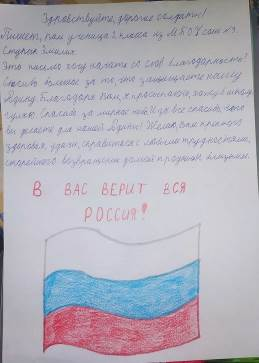 Здравствуйте, дорогие солдаты!
Пишет, вам ученица 2 класса из МБОУ СОШ №9
Ступак Эмилия.
Это письмо хочу начать со слов благодарности!
Спасибо большое за то, что защищаете нашу
Родину. Благодаря вам, я просыпаюсь, хожу в школу,
гуляю. Спасибо за мирное небо и за все спасибо, что
вы делаете для нашей Родины! Желаю, вам крепкого
здоровья, удачи, справиться с любыми трудностями,
скорейшего возвращения домой к родным и близким.
В ВАС ВЕРИТ ВСЯ
РОССИЯ!